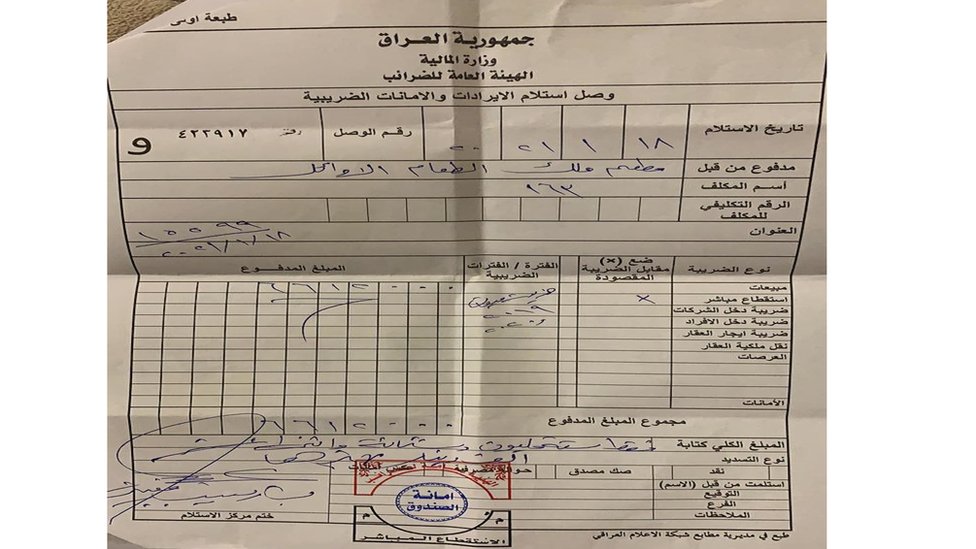 طبعة اوسى
جمهورية العراق
وزارة المالية
الهيئة العامة للضرائب
وصل استلام الايرادات والامانات الضريبية
تاريخ الاستلام ١٨ ١ ٢١ ٢٠ رقم الوصل رقم ٤٢٢٩١٧ و
مدفوع من قبل مطعم ملك الطعام الاوائل
أسم المكلف ١٦٣
الرقم التكليفي للمكلف
العنوان
نوع الضريبة ضع (×) مقابل الضريبة المقصودة الفترة / الفترات الضريبية المبلغ المدفوع
مبيعات ١٦١٢٠٠٠
استقطاع مباشر ×
ضريبة دخل الشركات ٢٠١٩
ضريبة دخل الافراد
ضريبة ايجار العقار
نقل ملكية العقار
العرصات
الأمانات
مجموع المبلغ المدفوع ١٦١٢٠٠٠
المبلغ الكلي كتابة
نوع التسديد
نقد صك مصدق حوالة مصرفية
استلمت من قبل (الاسم)
التوقيع
الفرع
الملاحظات
ختم مركز الاستلام
امانة الصندوق
الاستقطاع المباشر
طبع في مديرية مطابع شبكة الاعلام العراقي